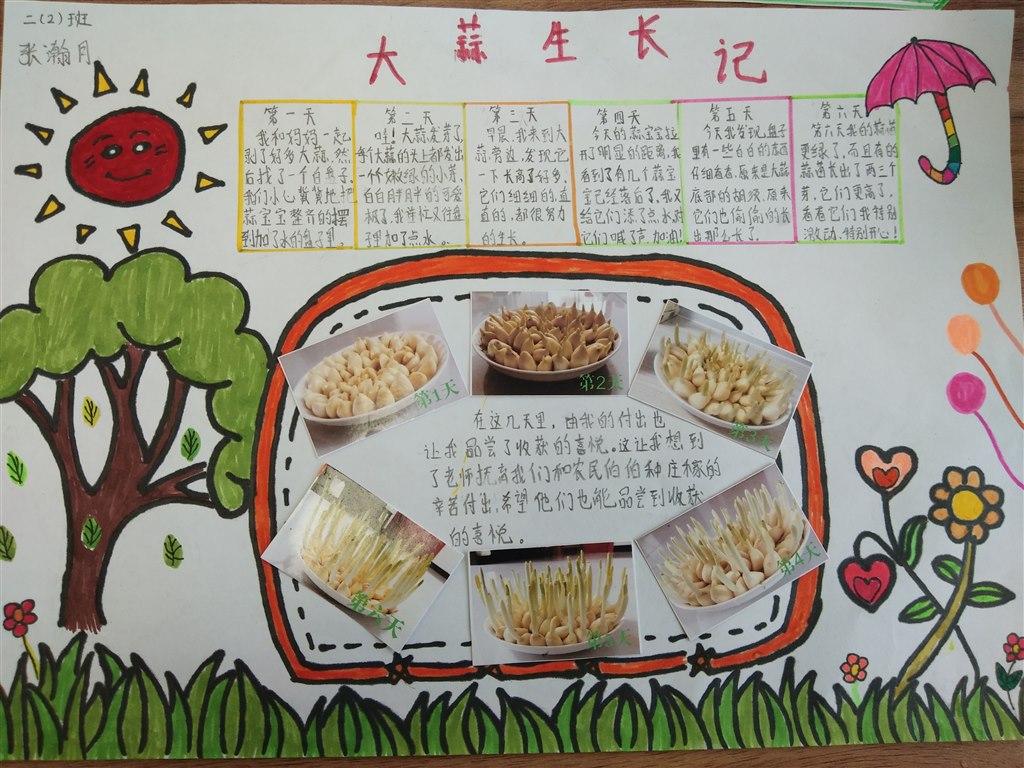 二(2)班
张瀚月
大蒜生长记
第一天
我和妈妈一起
剥了好多大蒜,然
后找了一个白盘子,
我们小心翼翼地把
蒜宝宝整齐的摆
到加了水的盘子里。
第二天
哇!大蒜发芽了,
每个大蒜的尖上都发出
一个个嫩绿的小芽,
白白胖胖的可爱
极了,我连忙又往盘
子里加了点水。
第三天
早晨,我来到大
蒜旁边,发现它
一下长高了好多,
它们细细的,直
直的,都很努力
的生长。
第四天
今天的蒜宝宝拉
开了明显的距离,我
看到了有几个蒜宝
宝已经落后了,我又
给它们添了点水对
它们喊了声:加油!
第五天
今天我发现盘子
里有一些白白的东西
仔细看看,原来是大蒜
底部的胡须,原来
它们也偷偷的长
出那么长了。
第六天
第六天我的蒜苗
更绿了,而且有的
蒜苗长出了两三个
芽,它们更高了,
看着它们我特别
激动,特别开心!
第1天
第2天
第3天
在这几天里,由我的付出也
让我品尝了收获的喜悦。这让我想到
了老师托离我们和农民伯伯种庄稼的
辛苦付出,希望他们也能品尝到收获
的喜悦。
第4天
第5天
第6天